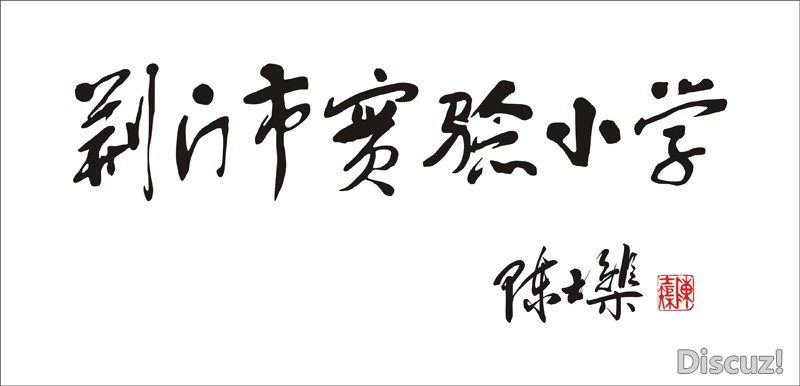 荆门市实验小学
陈士榘
Discuz!